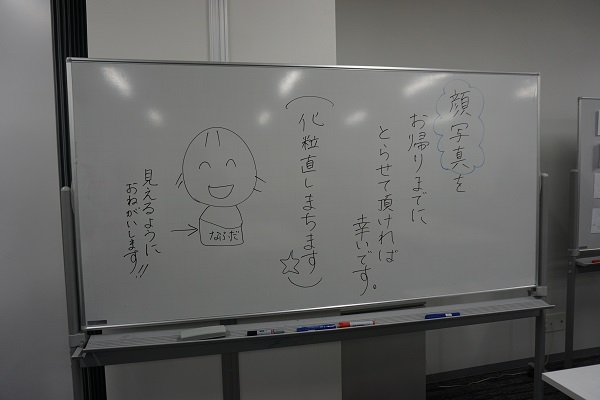 顔写真を
お帰りまでに、
とらせて頂ければ
幸いです。
(化粧直しまちます☆)
なふだ
見えるように
おねがいします!!